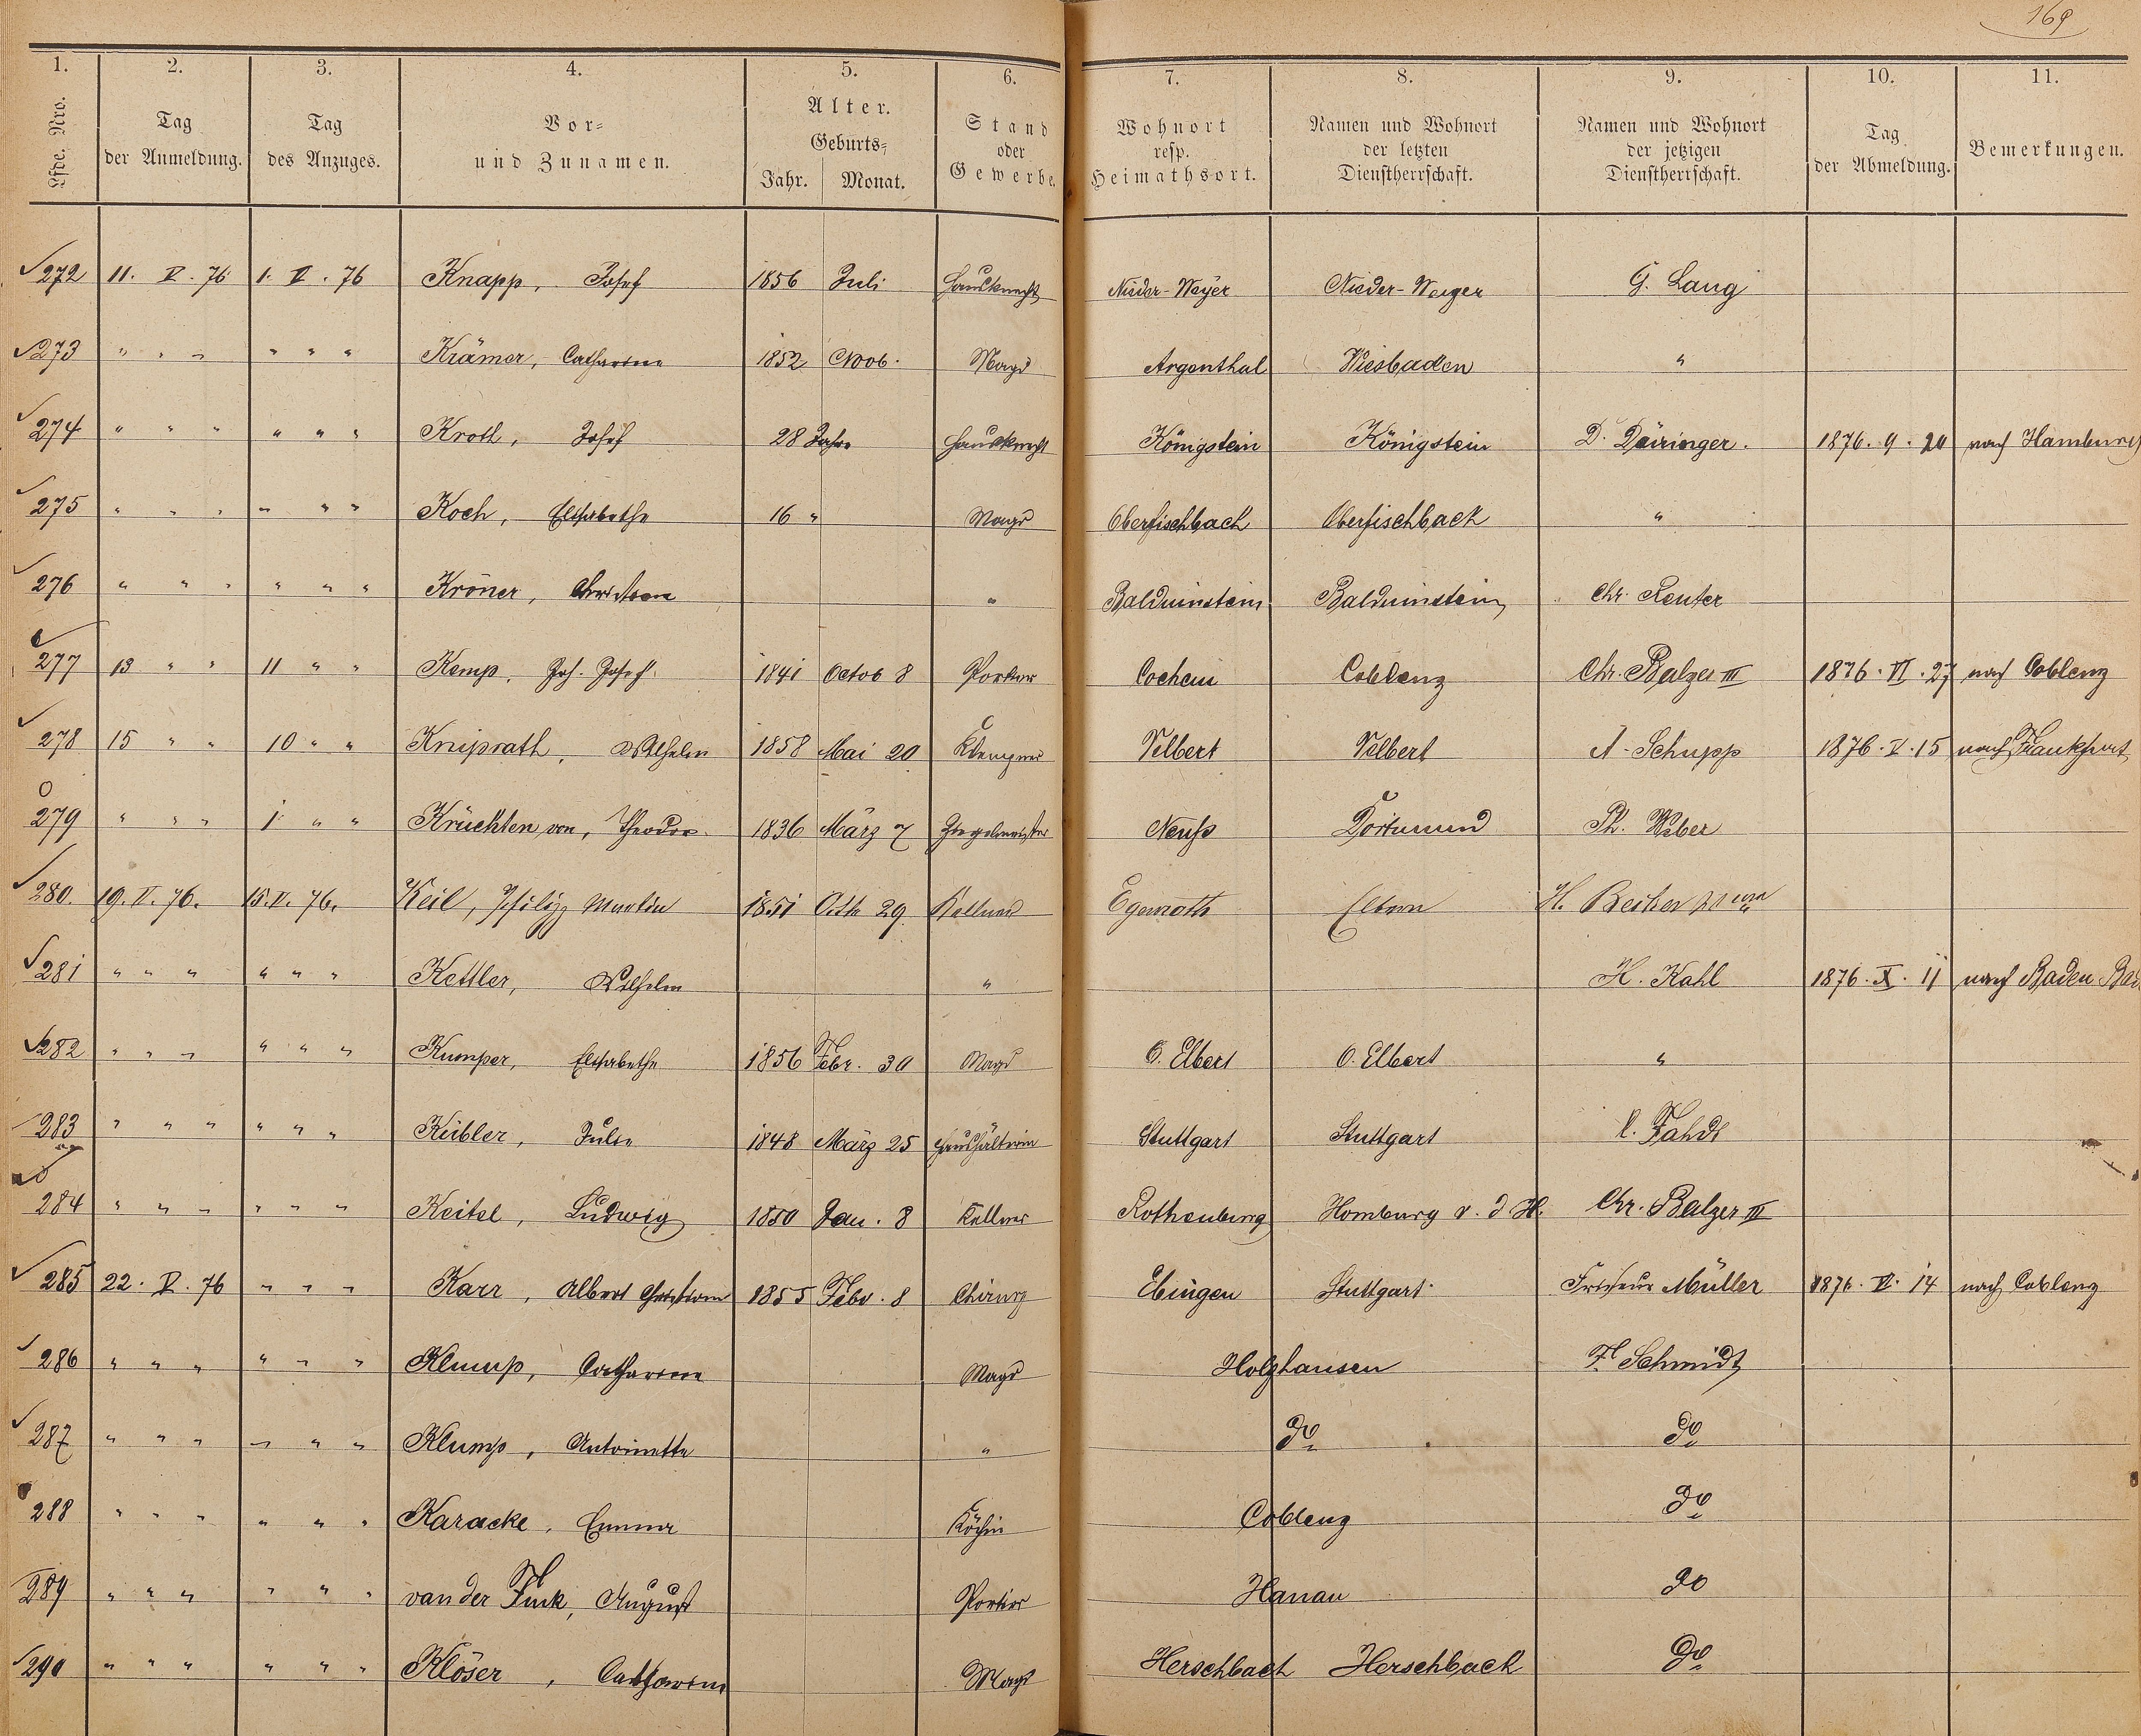 169
1. 2. 3. 4. 5. 6. 7. 8. 9. 10. 11.
Lfde. Nro. Tag der Anmeldung. Tag des Anzuges. Vor- und Zunamen. Alter. Geburts- Jahr. Monat. Stand oder Gewerbe. Wohnort resp. Heimathsort. Namen und Wohnort der letzten Dienstherrschaft. Namen und Wohnort der jetzigen Dienstherrschaft. Tag der Abmeldung. Bemerkungen.
272 11. V. 76 1. V. 76 Knapp, Josef 1856 Juli Hausknecht Nieder-Weyer Nieder-Weyer G. Lang
273 " " " " " " Krämer, Catharina 1852 Novb. Magd Argenthal Wiesbaden "
274 " " " " " " Kroth, Josef 28 Jahre Hausknecht Königstein Königstein D. Däringer. 1876. 9. 20 nach Hamburg
275 " " " " " " Koch, Elisabethe 16 " Magd Oberfischbach Oberfischbach "
276 " " " " " " Kröner, Christiane " Balduinstein Balduinstein Chr. Reuter
277 13 " " 11 " " Kemp, Joh. Josef 1841 Octob 8 Portier Cochem Coblenz Chr. Balzer III 1876. VI. 27 nach Coblenz
278 15 " " 10 " " Kniprath, Wilhelm 1858 Mai 20 Klempner Velbert Velbert A. Schupp 1876. V. 15 nach Frankfurt
279 " " " 1 " " Krüchten von, Theodor. 1836 März 7 Ziegelmeister Neuss Dortmund Ph. Weber
280. 19. V. 76. 15. V. 76. Keil, Philipp Martin 1851 Octb 29 Kellner Egenroth Eltern H. Becker
281 " " " " " " Kettler, Wilhelm " H. Kahl 1876. X. 11 nach Baden Bad
282 " " " " " " Kumper, Elisabethe 1856 Febr. 30 Magd O. Elbert O. Elbert "
283 " " " " " " Kübler, Julie 1848 März 25 Haushälterin Stuttgart Stuttgart Fahdt
284 " " " " " " Keitel, Ludwig 1850 Jan. 8 Kellner Rothenburg Homburg v. d H. Chr. Balzer III
285 22. V. 76 " " " Karr, Albert Christian 1855 Febr. 8 Chirurg Ebingen Stuttgart. Friseur Müller 1876. VI. 14 nach Coblenz
286 " " " " " " Klump, Catharina Magd Holzhausen Fl Schmidt
287 " " " " " " Klump, Antoinette " do do
288 " " " " " " Karacke, Emma Köchin Coblenz do
289 " " " " " " van der Fink, August Portier Hanau do
290 " " " " " " Klöser, Catharina Magd Herschbach Herschbach do